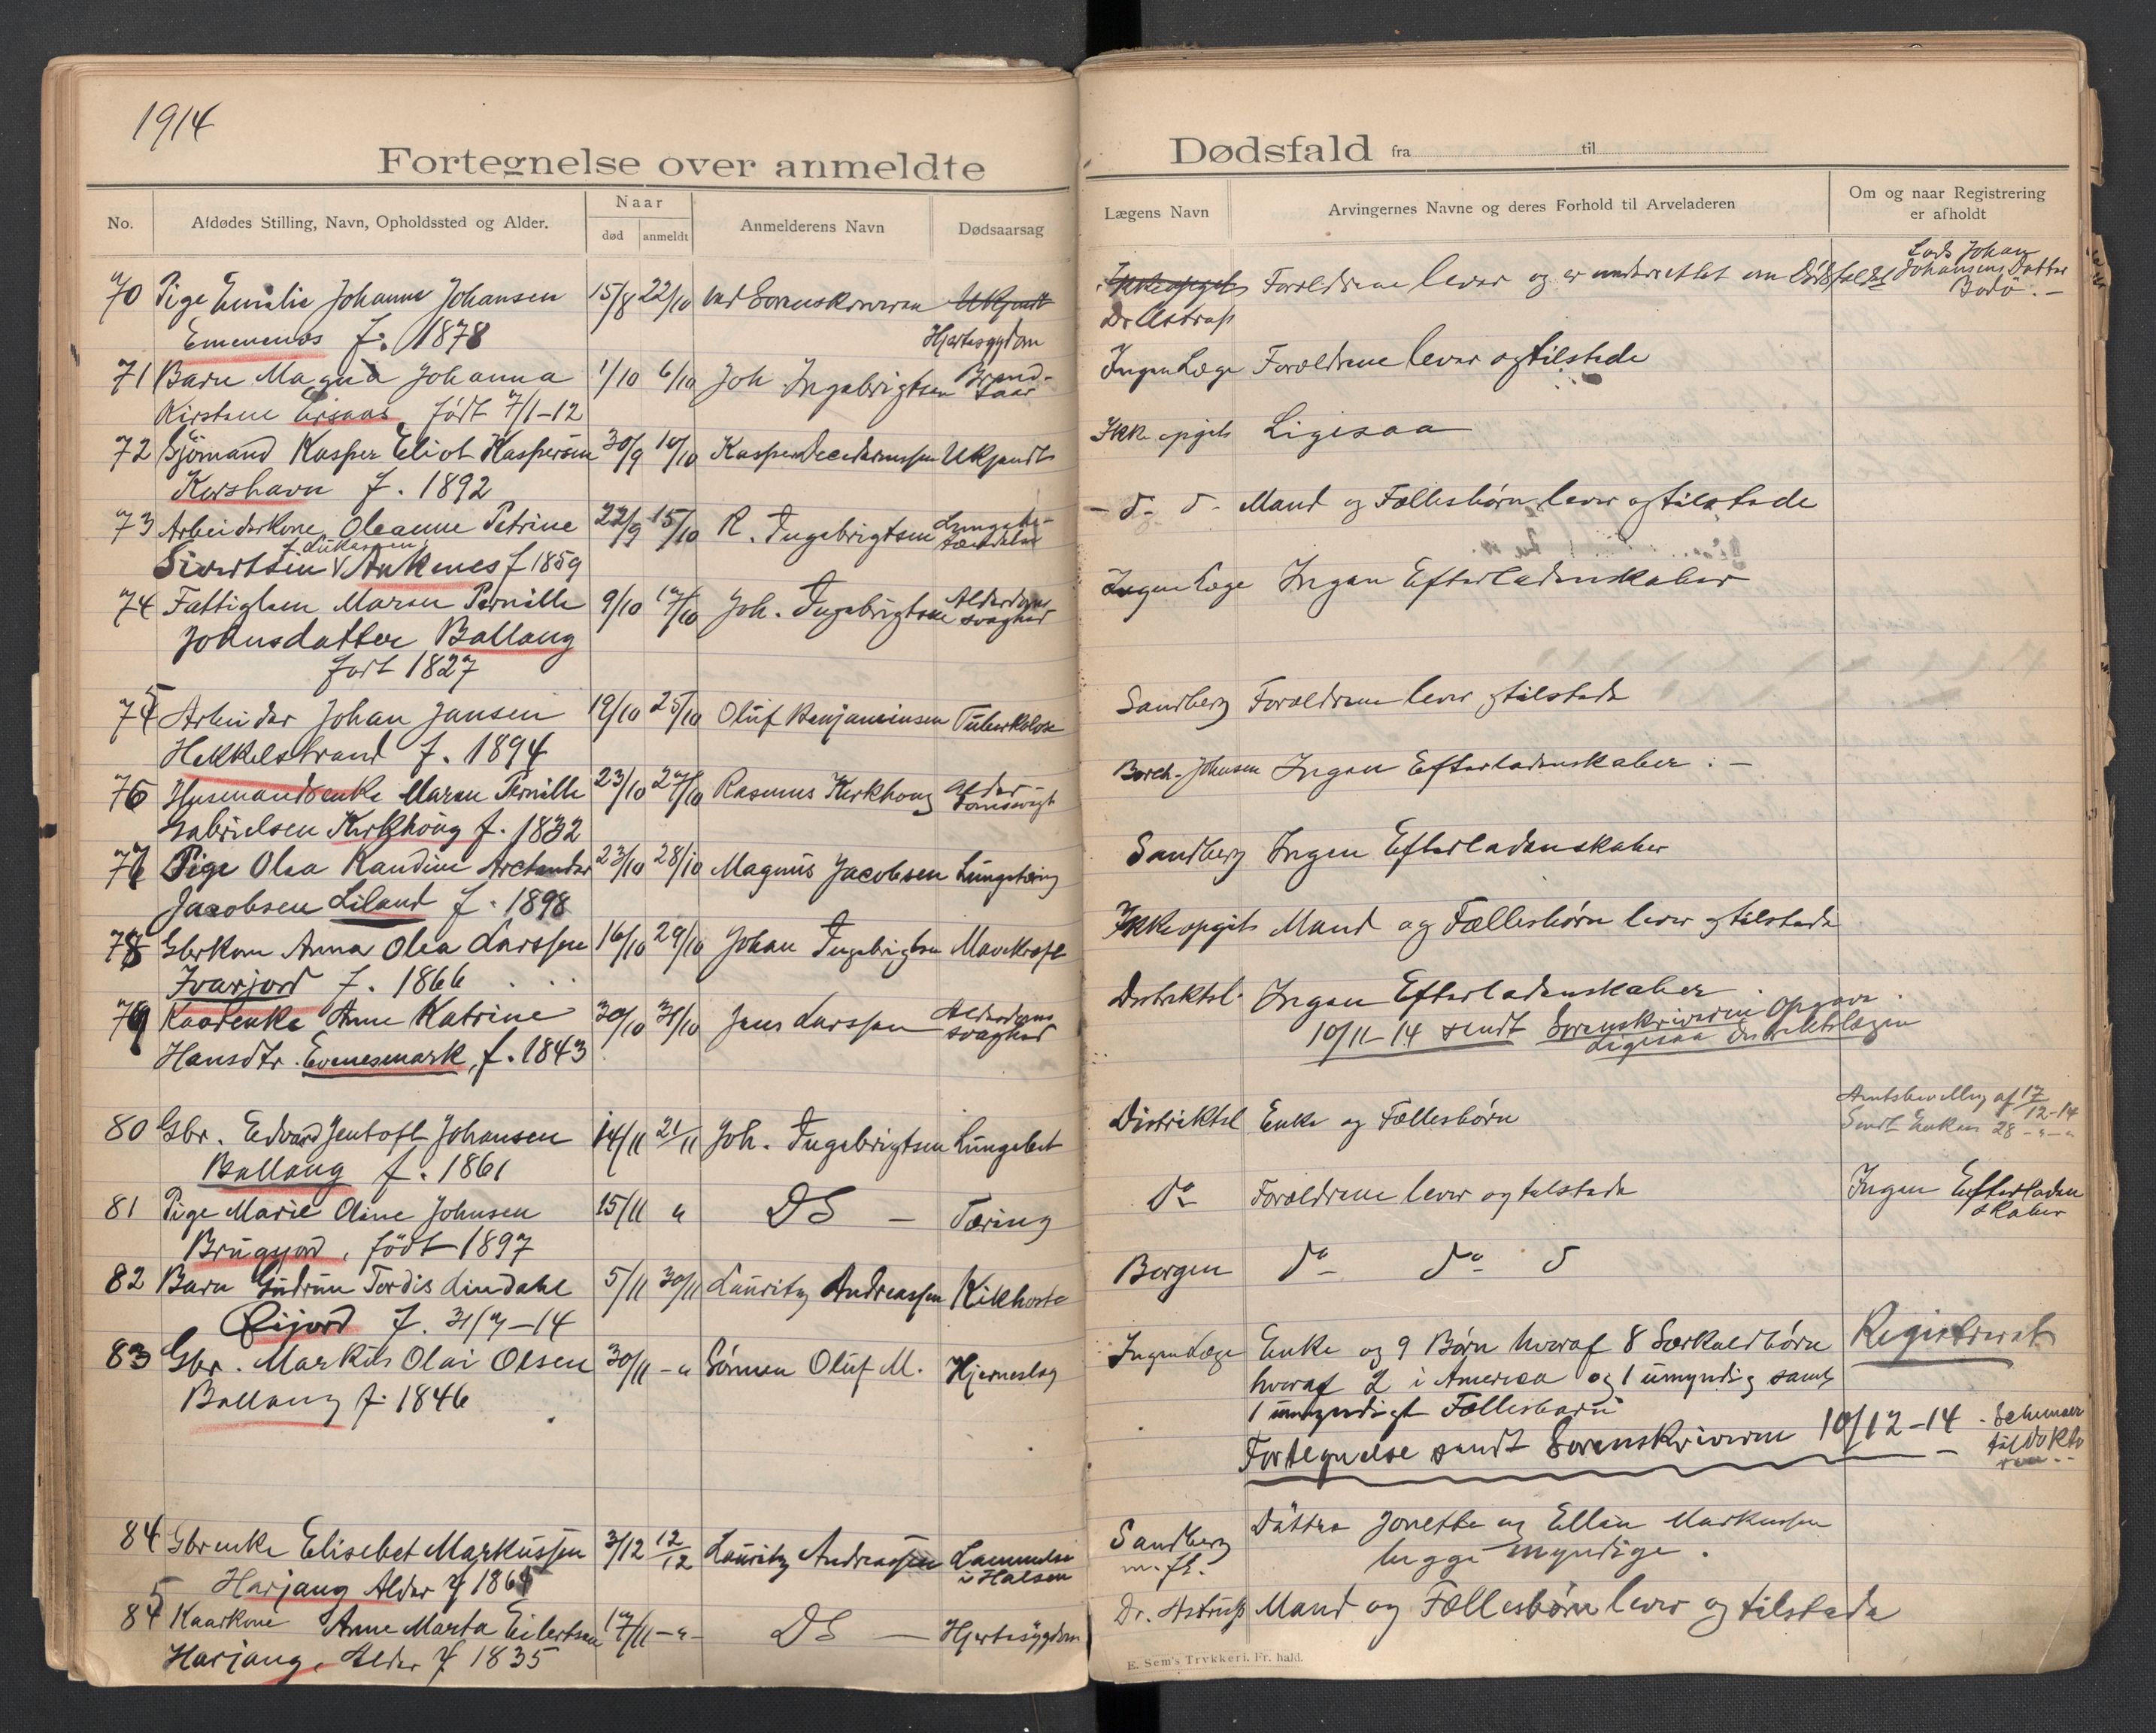 1914
Fortegnelse over anmeldte
No.
Afdødes Stilling, Navn, Opholdssted og Alder.
Naar
død
anmeldt
Anmelderens Navn
Dødsaarsag
70 Pige Emilie Johanne Johansen 15/8 22/10 ved Sorenskriveren Ukjendt
Emenenes f. 1878 Hjertesygdom
71 Barn Magna Johanna 1/10 6/10 Joh Ingebrigtsen Brand-
Kirstine født 7/1-12 saar
72 Kasper Eliot Kaspersen 30/9 10/10 Kasper Ukjendt
Korshavn f. 1892
73 Arbeiderkone Oleanne Petrine 22/9 15/10 R. Ingebrigtsen Lungebe-
f. Lukassen tændelse
Sivertsen Ankenes f 1859
74 Fattiglem Maren Pernille 9/10 17/10 Joh. Ingebrigtsen Alderdoms
Johnsdatter Ballang svaghed
født 1827
75 Arbeider Johan Jansen 19/10 25/10 Oluf Benjaminsen Tuberkolose
Hekkelstrand f. 1894
76 Husmandsenke Maren Pernille 23/10 27/10 Rasmus Kirkhoug Alder-
Gabrielsen Kirkhoug f. 1832 domsvagh
77 Pige Olea Randine Arctander 23/10 28/10 Magnus Jacobsen Lungetæring
Jacobsen Liland f. 1898
78 Gbrkone Anna Olea Larssen 16/10 29/10 Johan Ingebrigtsen Mavekræft
Ivarjord f. 1866
79 Kaarenke Anne Katrine 30/10 31/10 Jens Larssen Alderdoms
Hansdtr. Evenesmark, f. 1843 svaghed
80 Gbr. Edvard Jentoft Johansen 14/11 21/11 Joh. Ingebrigtsen Lungebet
Ballang f. 1861
81 Pige Marie Oline Johnsen 15/11 " DS — Tæring
født 1897
82 Barn Gudrun Tordis Lindahl 5/11 30/11 Lauritz Andreassen Kikhoste
Øijord f. 31/7-14
83 Gbr. Markus Olai Olsen 30/11 - " Sønnen Oluf M. Hjerneslag
Ballang f. 1846
84 Gbrenke Elisebet Markussen 3/12 12/12 Lauritz Andreassen Lammelse
Harjang Alder f 1861 i Halsen
85 Kaarkone Anne Marta Eilertsen 17/11 - " - DS — Hjertesygdom
Harjang, Alder f 1835
Dødsfald fra til
Lægens Navn
Arvingernes Navne og deres Forhold til Arveladeren
Om og naar Registrering
er afholdt
Ikke opgit Forældrene lever og er underrettet om Dødsfaldet Johan
Johansens Datter
Dr Astrup Bodø. -
Ingen Læge Forældrene lever og tilstede
Ikke opgit Ligesaa
- d - d - Mand og Fællesbørn lever og tilstede
Ingen Læge Ingen Efterladenskaber
Sandberg Forældrene lever og tilstede
Borch-Johnsen Ingen Efterladenskaber. -
Sandberg Ingen Efterladenskaber
Ikke opgit Mand og Fællesbørn lever og tilstede
Distriktsl. Ingen Efterladenskaber.
10/11-14 sendt Sorenskriveren Opgave.
Ligesaa Distriktslægen
Distriktsl Enke og Fællesbørn Amtsbevilling af 17/12-14
Sendt Enken 28 - " - "
do Forældrene lever og tilstede Ingen Efterladen
skaber
Borgen do do d
Ingen Læge Enke og 9 Børn hvoraf 8 Særkuldbørn Registreret
hvoraf 2 i America og 1 umyndig samt
1 umyndigt Fællesbarn
Fortegnelse sendt Sorenskriveren 10/12-14 -
Sandberg Døttre Jonette og Ellen Markussen
m. fl. begge myndige.
Dr. Astrup Mand og Fællesbørn lever og tilstede
E. Sem's Trykkeri, Fr. hald.